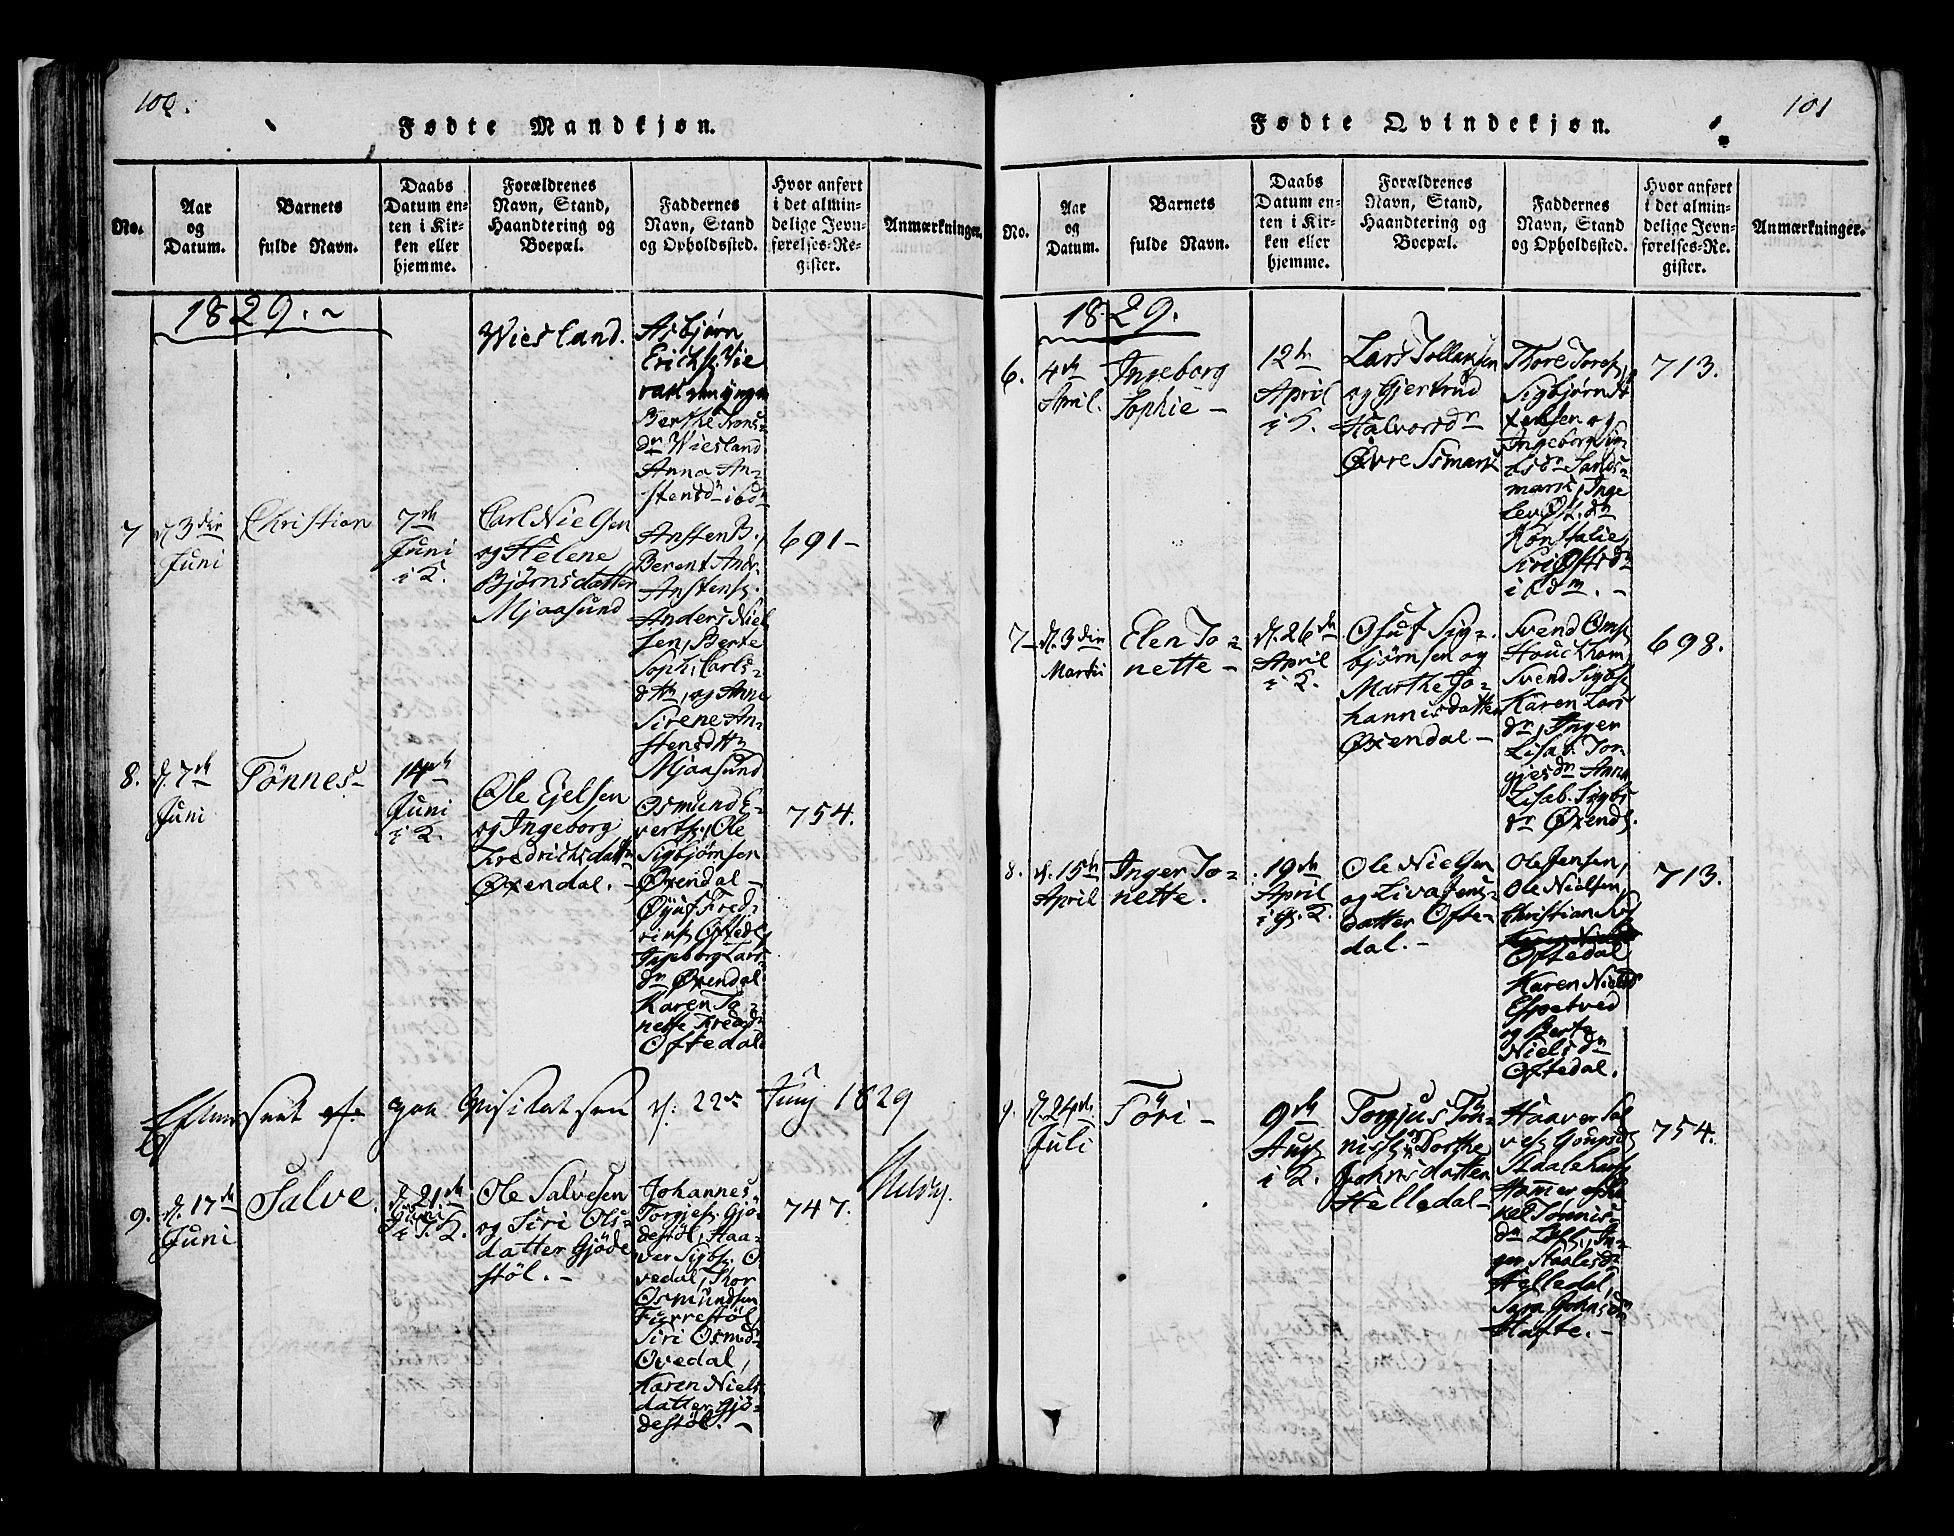 100.
Fødte Mandkjøn.
No.
Aar
og
Datum.
Barnets
fulde Navn.
Daabs
Datum en-
ten i Kir-
ken eller
hjemme.
Forældrenes
Navn, Stand,
Haandtering og
Boepæl.
Faddernes
Navn, Stand
og Opholdssted.
Hvor anført
i det almin-
delige Jevn-
førelses-Re-
gister.
Anmærkninger.
1829.
Wiesland.
Asbjørn
Berthe
dr Wiesland
Anna An-
stensdr ibdm
7
d. 3die
Juni
Christian
7de
Juni
i K.
Carl Nielsen
og Helene
Bjørnsdatter
Mjaasund
Ansten B.
Berent Andr.
Anstens.
Anders Niel
sen, Berte
Soph. Carls-
dtr, og Anne
Sirene An-
stensdtr
Mjaasund
691-
8.
d. 7de
Juni
Tönnes-
14de
Juni
i K.
Ole Ejelsen
og Ingeborg
Fredrichsdattr
Øxendal. -
Osmund E-
verts., Ole
Sigbjørnsen
Øxendal -
Øjuf Fred-
Oftedl,
Ingeborg Lars
dr Øxendal
Karen To-
nette Fredsdr
Oftedal
754.
22de Junij 1829
9.
d. 17de
Juni
Salve
d. 21de
Juni
i K.
Ole Salvesen
og Siri Ols-
datter Gjöde
stöl. -
Johannes
Torgies. Gjö-
destöl, Haa-
ver Sigbs. O-
vedal, Thor
Osmundsen
Furrestöl,
Siri Osmdr
Ovedal,
Karen Niels
datter Gjö-
destöl. -
747.
101
Fødte Qvindekjøn.
No.
Aar
og
Datum.
Barnets
fulde Navn.
Daabs
Datum en-
ten i Kir-
ken eller
hjemme.
Forældrenes
Navn, Stand,
Haandtering og
Boepæl.
Faddernes
Navn, Stand
og Opholdssted.
Hvor anført
i det almin-
delige Jevn-
førelses-Re-
gister.
Anmærkninger.
1829.
6.
4de
April.
Ingeborg
Sophie -
12te
April
i K.
Lars Tollaksen
og Gjertrud
Halvorsdr
Øvre
Thore
Sigbjørn
Ingeborg
mark, Inge
Siri
i bdm. -
713.
7
d. 3die
Martii
Elen To-
nette -
d. 26de
April
i K.
Osuf Sig-
bjørnsen og
Marthe Jo-
hannisdatter
Øxendal -
Svend Oms.
Svend Sigbs.
Karen Lars
dr, Inger
Lisab. Tor-
gjesdr Anna
Lisab. Sigbs
dr Øxendl.
698.
8.
d. 15de
April
Inger To-
nette.
19de
April
i K.
Ole Nielsen
og Liva Jens
datter Ofte-
dal. -
Ole Jensen,
Ole Nielsen,
Christian
Oftedal
Karen Nielsd
Espetved
og Berta
Nielsdr
Oftedal.
713.
9.
d. 24de
Juli
Töri -
9de
Augs
i K.
Torgjus Tön-
nis. Dorthe
Johnsdatter
Helledal -
Haaver Sal
ves.
Staale Hans.
Tönnis-
dr
Staalesdr
Helledal,
Sara Johnsdr
Hafte. -
754.